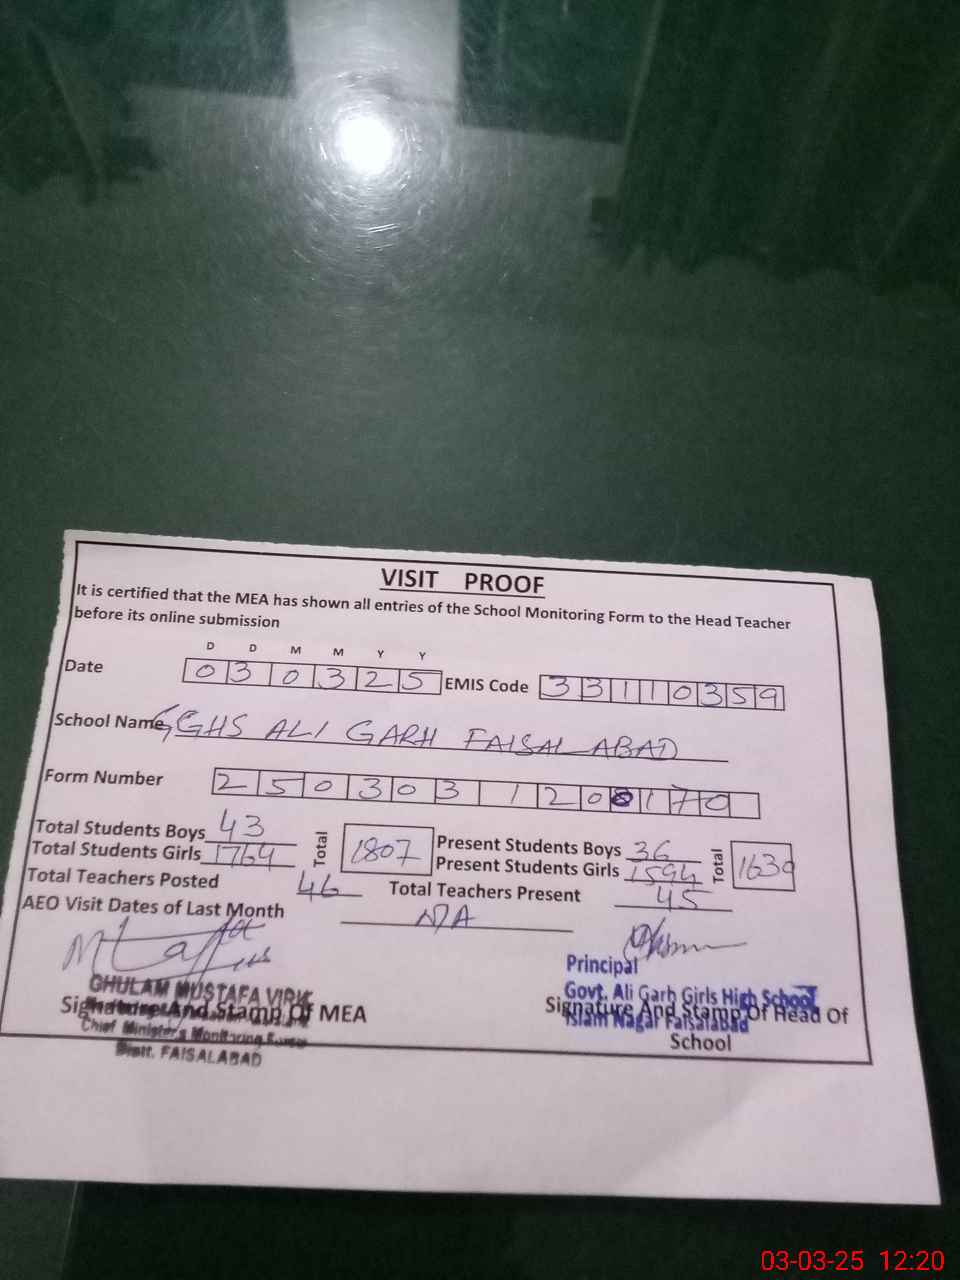 VISIT PROOF
It is certified that the MEA has shown all entries of the School Monitoring Form to the Head Teacher
before its online submission
D D M M Y Y
Date 0 3 0 3 2 5 EMIS Code 3 3 1 1 0 3 5 9
School Name GGHS ALI GARH FAISALABAD
Form Number 2 5 0 3 0 3 1 2 0 0 1 7 0
Total Students Boys 43 Total 1807 Present Students Boys 36 Total 1630
Total Students Girls 1764 Present Students Girls 1594
Total Teachers Posted 46 Total Teachers Present 45
AEO Visit Dates of Last Month N/A
Principal
GHULAM MUSTAFA VIRK Govt. Ali Garh Girls High School
Signature And Stamp Of MEA Signature And Stamp Of Head Of
Islam Nagar Faisalabad
Chief Minister's Monitoring Force
School
Distt. FAISALABAD
03-03-25 12:20